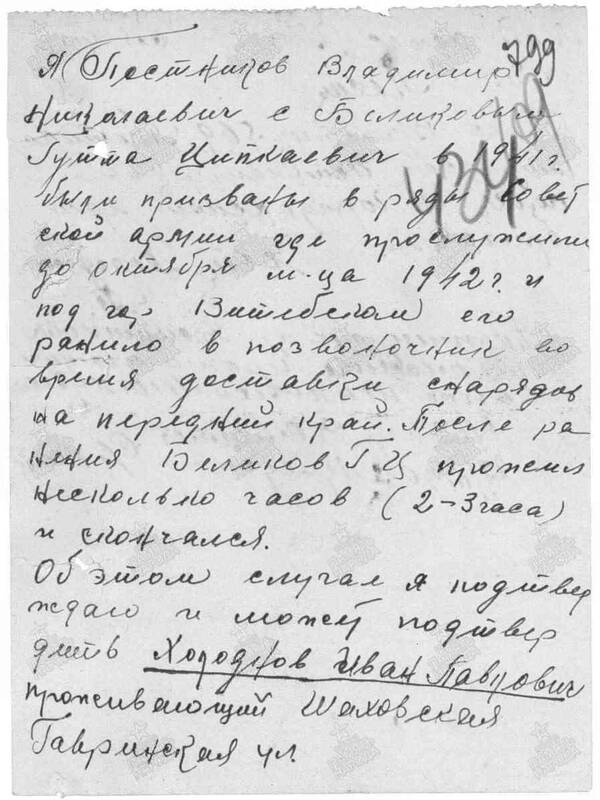 799
Я Постников Владимир
Николаевич с Беликовым
Гутта Ципкаевич в 1941 г.
были призваны в ряды Совет
434
ской армии где прослужили
до октября м-ца 1942 г. и
под гор Витебском его
ранило в позвоночник во
время доставки снарядов
на передний край. После ра
нения Беликов Г Ц прожил
несколько часов (2-3 часа)
и скончался.
Об этом случае я подтвер
ждаю и может подтвер
дить Холоднов Иван Павлович
проживающий Шаховская
Гавринская ул.